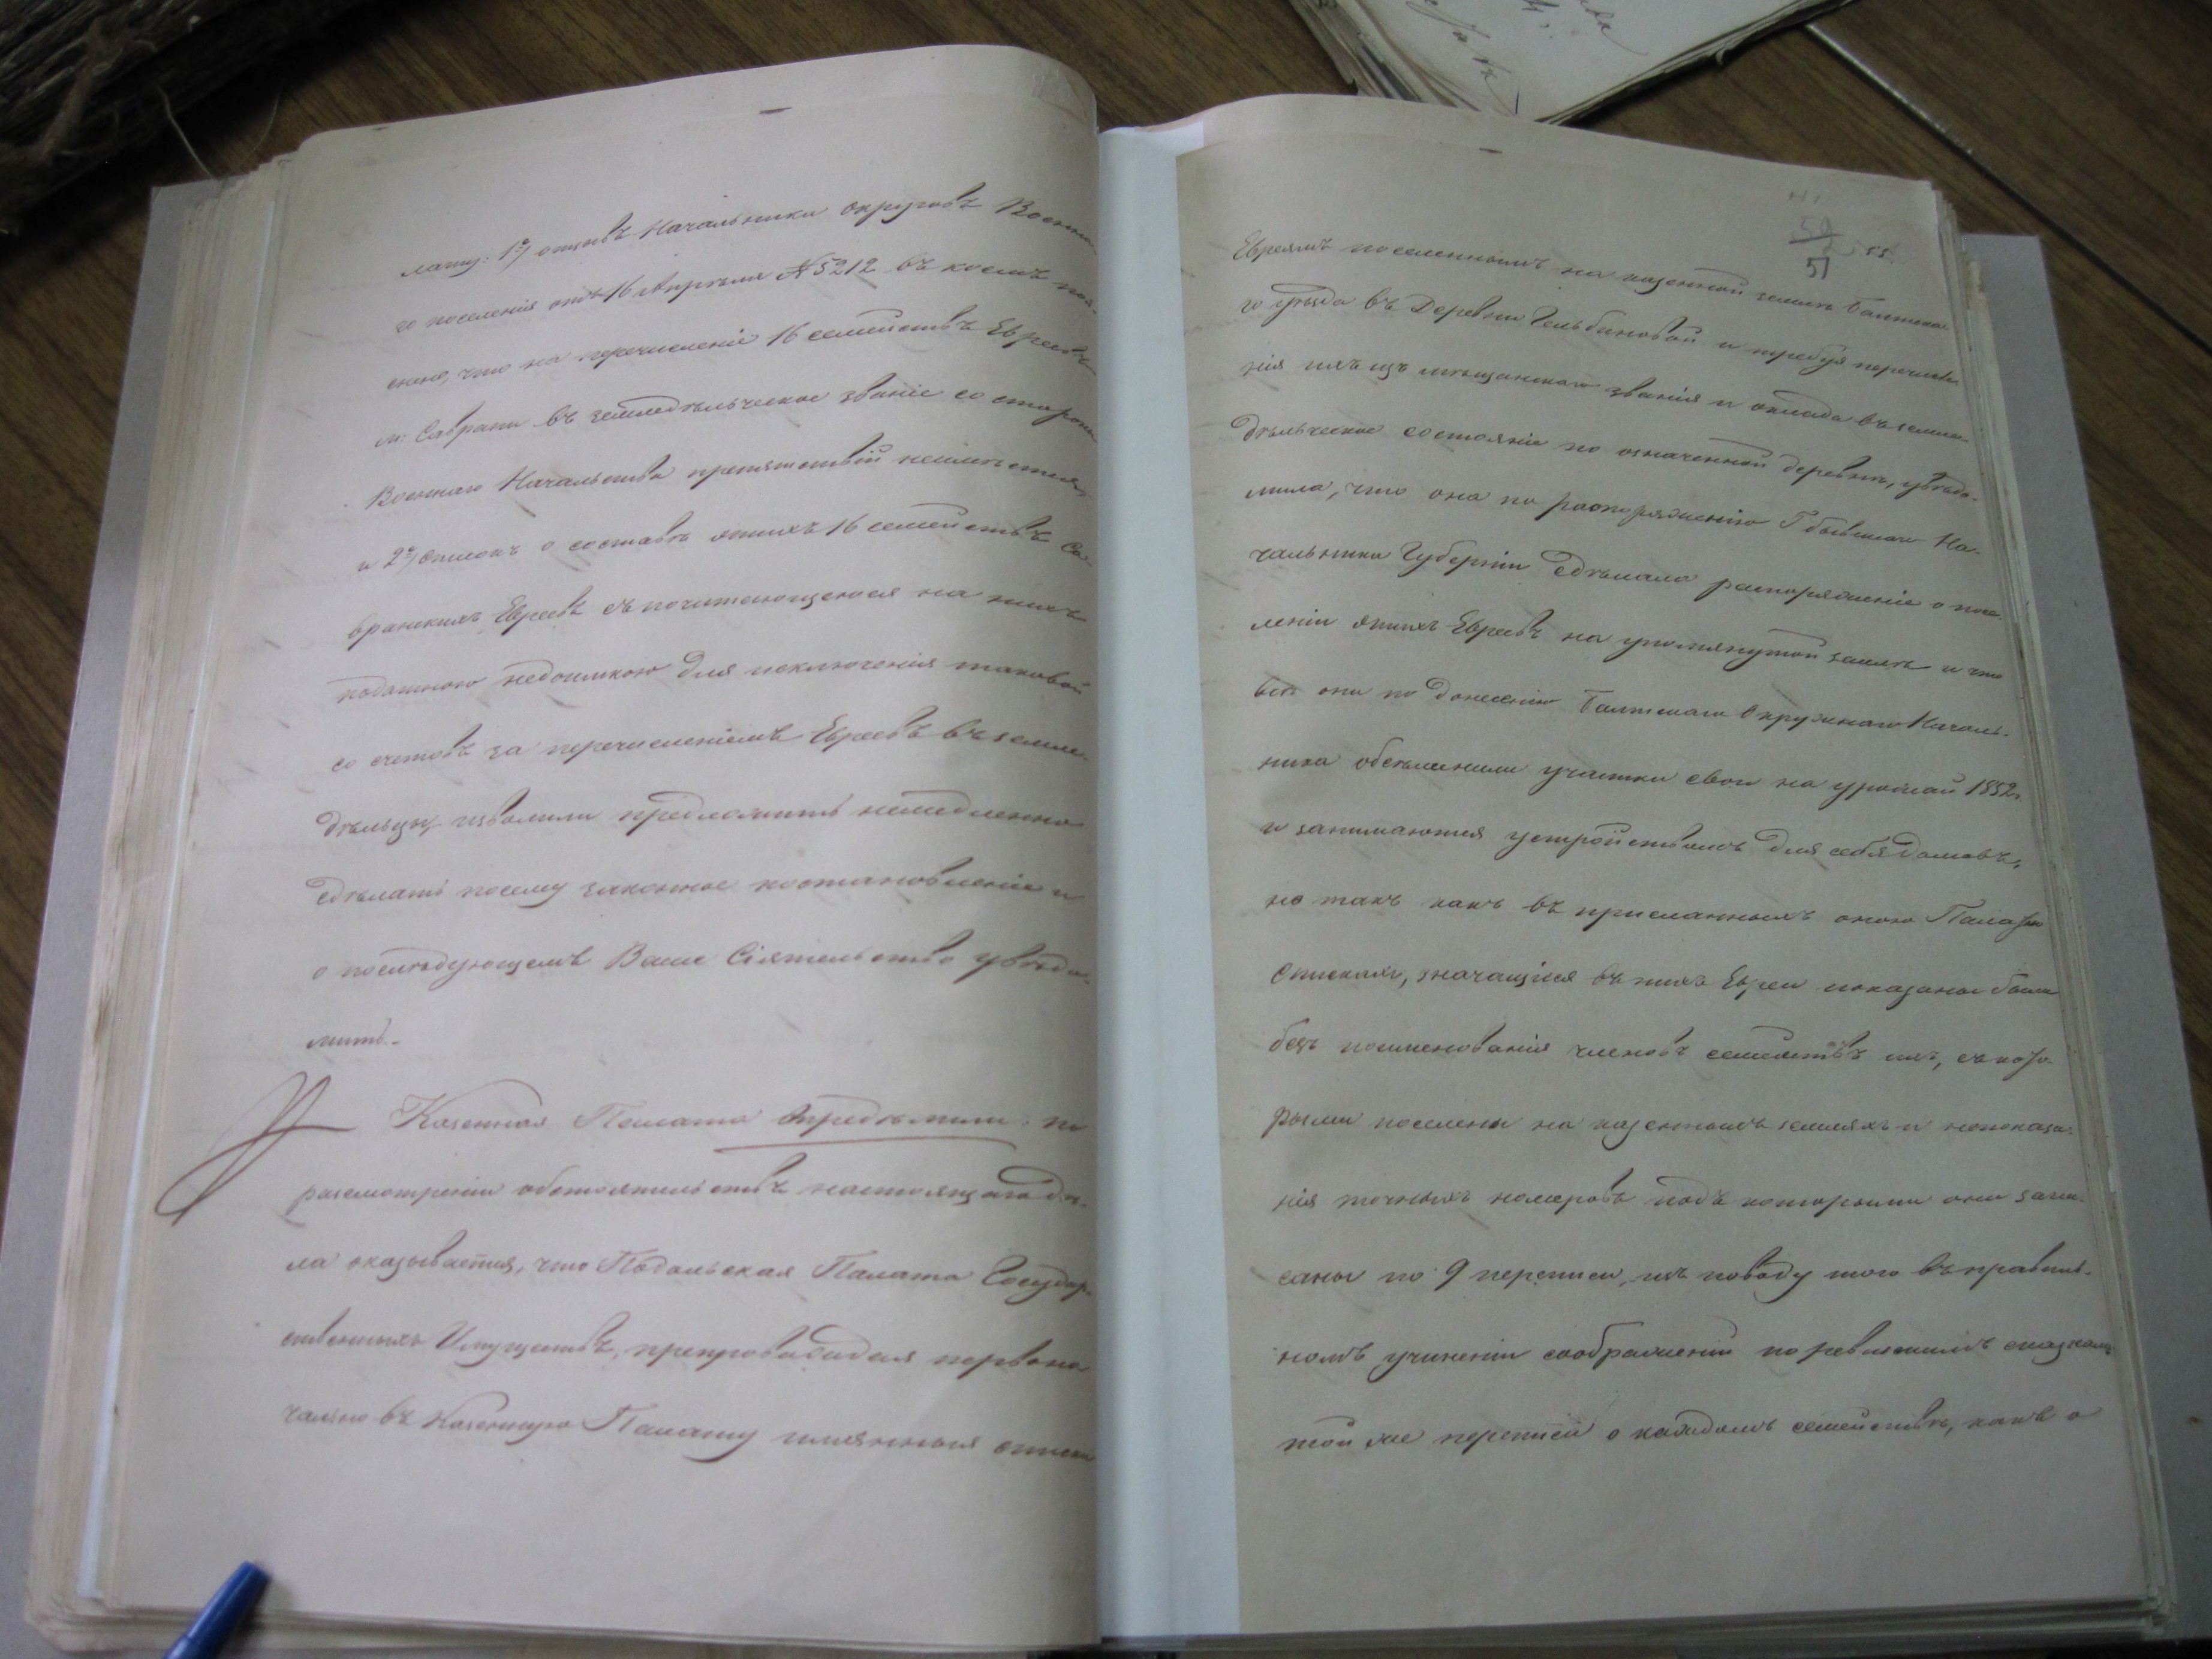 лату: 1е) отзывъ Начальника округовъ Военна-
го поселенія отъ 16 Апрѣля №5212 въ коемъ поя-
снено, что на перечисленіе 16 семействъ Евреевъ
м: Саврани въ земледѣльческое званіе со стороны
Военнаго Начальства препятствій неимѣется
и 2е) списокъ о составѣ этихъ 16 семействъ Са-
вранскихъ Евреевъ съ почитающеюся на нихъ
податною недоимкою для исключенія таковой
со счетовъ за перечисленіемъ Евреевъ въ земле-
дѣльцы, изволили предложить немедленно
сдѣлать посему законное постановленіе и
о послѣдующемъ Ваше Сіятельство увѣдо-
мить.-
Казенная Палата опредѣлили: по
разсмотреніи обстоятельствъ настоящаго дѣ-
ла оказывается, что Подольская Палата Государ-
ственныхъ Имуществъ, препровождая первона
чально въ Казенную Палату имянныя списки
50
51
Евреямъ поселеннымъ на казенной землѣ Балтска
го уѣзда въ Деревни Гельбиновой и требуя перечисле
нія ихъ изъ мѣщанскаго званія и оклада въ земле-
дѣльческое состояніе по означенной деревнѣ, увѣдо-
мила, что она по распоряженію Г бывшаго На-
чальника Губерніи сдѣлала распоряженіе о посе
леніи этихъ Евреевъ на упомянутой землѣ и что
всѣ они по донесенію Балтскаго Окружнаго Началь-
ника обсѣменили участки свои на урожай 1852г.
и занимаются устройствомъ для себя домовъ,
но такъ какъ въ присланныхъ оною Палатою
спискахъ, значащіеся въ нихъ Евреи показаны были
безъ поименованія членовъ семействъ ихъ, съ кото-
рыми поселены на казенныхъ земляхъ и непоказа-
нія точныхъ номеровъ подъ которыми они запи-
саны по 9 переписи, то поводу того въ правиль-
номъ учиненіи соображеній по ревизскимъ сказкамъ
той же переписи о каждомъ семействѣ, какъ о